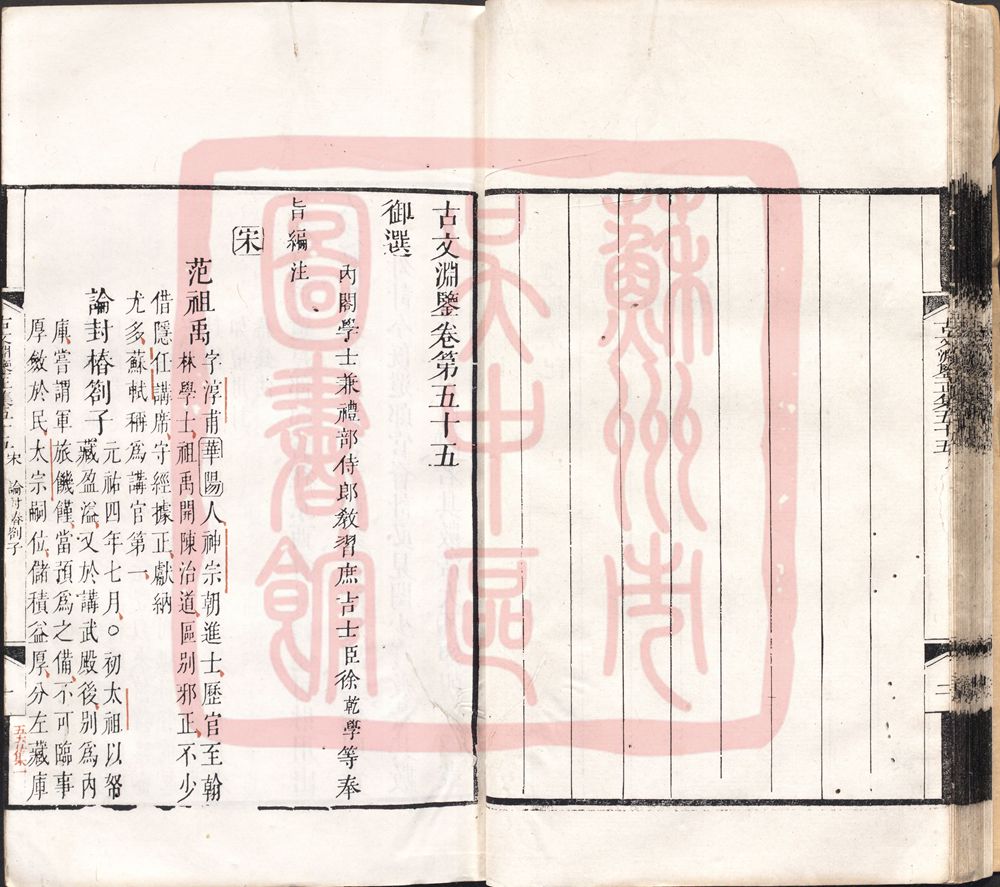 古文淵鑒卷第五十五
御選
內閣學士兼禮部侍郎教習庶吉士臣徐乾學等奉
旨編注
宋
范祖禹字淳甫華陽人神宗朝進士歷官至翰
林學士祖禹開陳治道區别邪正不少
借隱任講席守經據正獻納
尤多蘇軾稱爲講官第一
論封樁劄子元祐四年七月○初太祖以帑
藏盈溢又於講武殿後别爲內
庫嘗謂軍旅饑饉當預爲之備不可臨事
厚斂於民太宗嗣位儲積益厚分左藏庫
古文淵鑒正集五十五 宋 論封樁劄子 一
五十五集一
古文淵鑒正集五十五
二
蘇州市
吳中區
圖書館